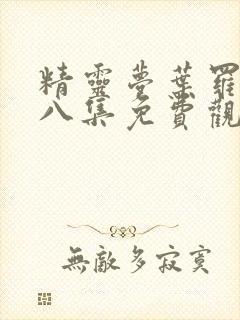 精靈夢葉羅
八集免費觀
無敵多寂寞